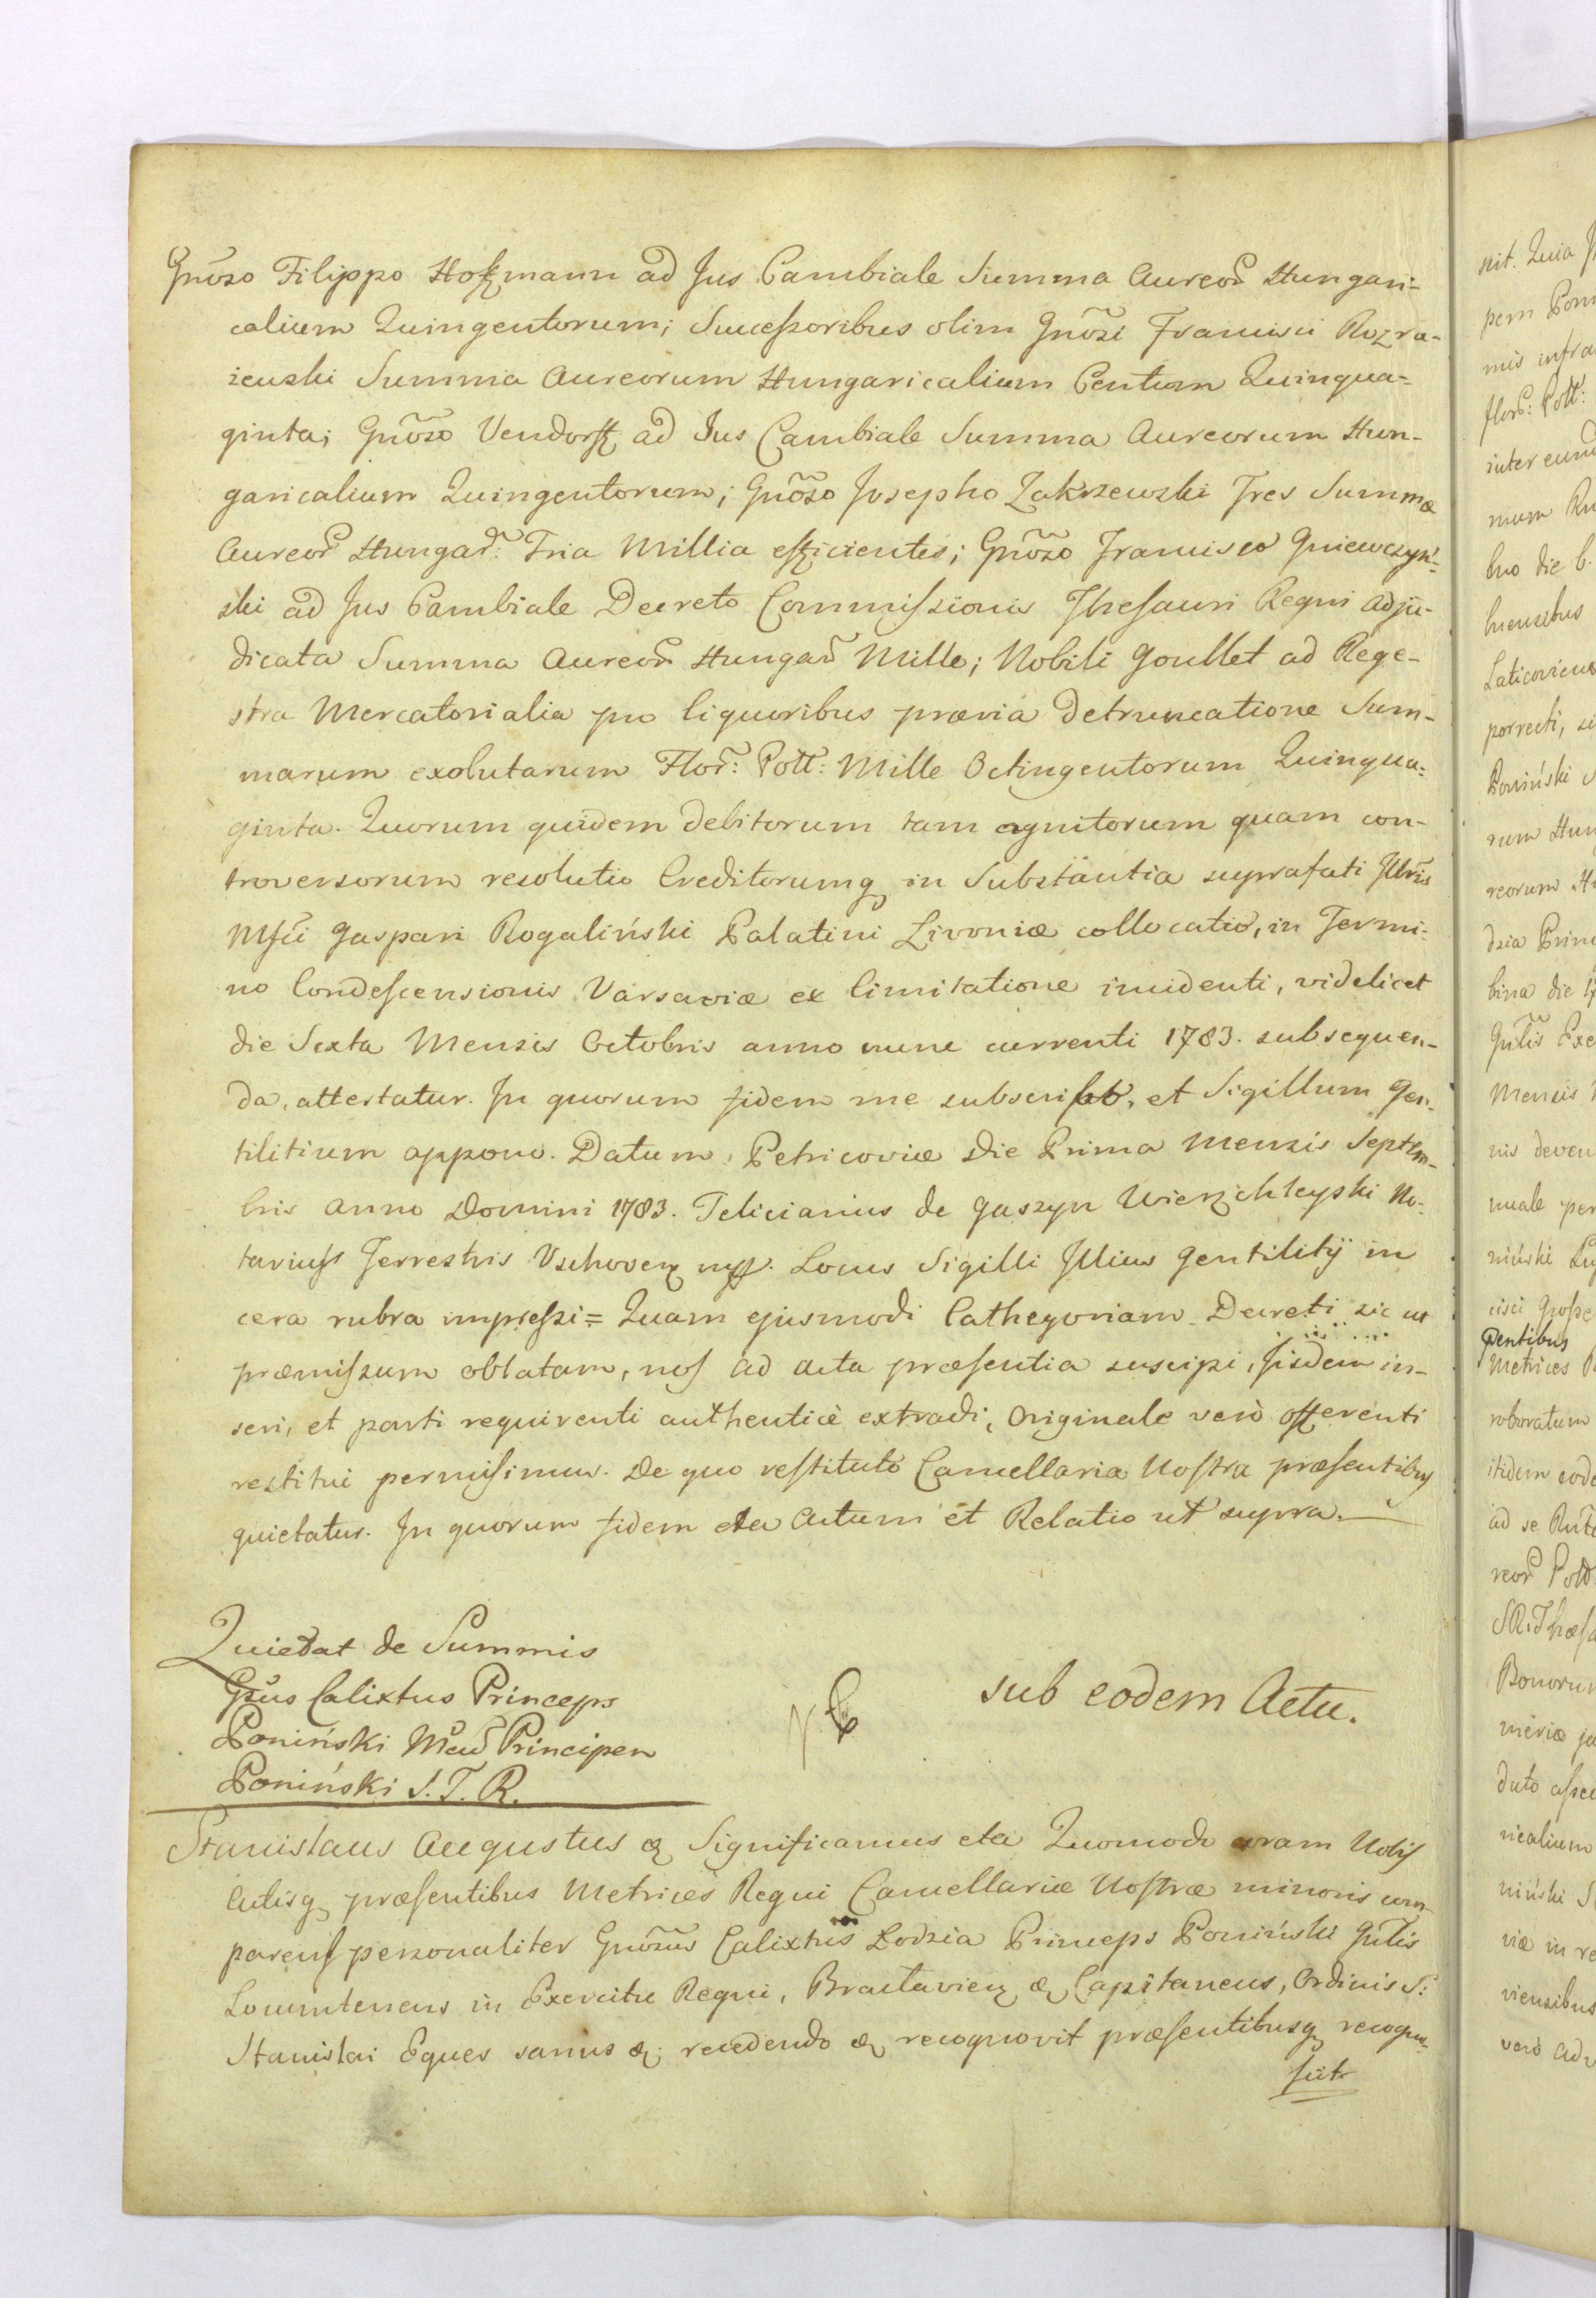 Gnõso Filippo Hoffmann ad Jus Cambiale Summa Aureor̃ Hungari-
calium Quingentorum; Successoribus olim Gnõsi Francisci Rozra-
żewski Summa Aureorum Hungaricalium Centum Quinqua-
ginta; Gnõso Vendorff ad Jus Cambiale Summa Aureorum Hun-
garicalium Quingentorum; Gnõso Josepho Zakrzewski Tres Summæ
Aureor̃ Hungar̃: Tria Millia efficientes; Gnõso Francisco Gniewczyń-
ski ad Jus Cambiale Decreto Commissionis Thesauri Regni adju-
dicata Summa Aureor̃ Hungar̃ Mille; Nobili Goullet ad Rege-
stra Mercatorialia pro liquoribus prævia Detruncatione Sum-
marum exolutarum Flor̃: Poll̃: Mille Octingentorum Quinqua-
ginta. Quorum quidem debitorum tam agnitorum quam con-
troversorum resolutio Creditorumq in Substantia suprafati Illr̃is
Mfci Gaspari Rogaliński Palatini Livoniæ collocatio, in Termi-
no Condescensionis Varsaviæ ex limitatione incidenti, videlicet
die Sexta Mensis Octobris anno nunc currenti 1783. subsequen-
da, attestatur. In quorum fidem me subscribo, et Sigillum Gen-
tilitium appono. Datum Petricoviæ Die Prima Mensis Septem-
bris Anno Domini 1783. Felicianus de Gaszyn Wierzchleyski No-
tarius Terrestris Vschoveñ mp. Locus Sigilli Illius Gentilitÿ in
cera rubra impressi = Quam ejusmodi Cathegoriam Decreti sic ut
præmissum oblatam, nos ad acta præsentia suscipi, iisdem in-
seri, et parti requirenti authenticè extradi, Originale verò offerenti
restitui permisimus. De quo restituto Cancellaria Nostra præsentibus
quietatur. In quorum fidem etca Actum et Relatio ut supra.
Quietat de Summis
Gñus Calixtus Princeps
Poniński Principem
Poniński S. T. R.
sub eodem Actu.
Stanislaus Augustus & Significamus etca Quomodo coram Nobis
Actisq præsentibus Metrices Regni Cancellariæ Nostræ minoris com-
parens personaliter Gnõsus Calixtus Lodzia Princeps Poniński Gñlis
Locumtenens in Exercitu Regni, Braclavieñ & Capitaneus, Ordinis S:
Stanislai Eques sanus & recedendo & recognovit præsentibusq recogno-
scit
nit. Quia
pem
mis infra
flor̃: Poll̃:
inter
mum
die
mensibus
porrecti,
Poniński
rum
reorum
dzia
bina die
Gñlis Exe
Mensis
nis deven
nuale per
niński
cisci
Pentibus
Metrices
roboratum
itidem eode
ad se
reor̃ Poll̃
Bonorum
meriæ
dato
ricalium
niński
viæ in re
viensibus
verò adv